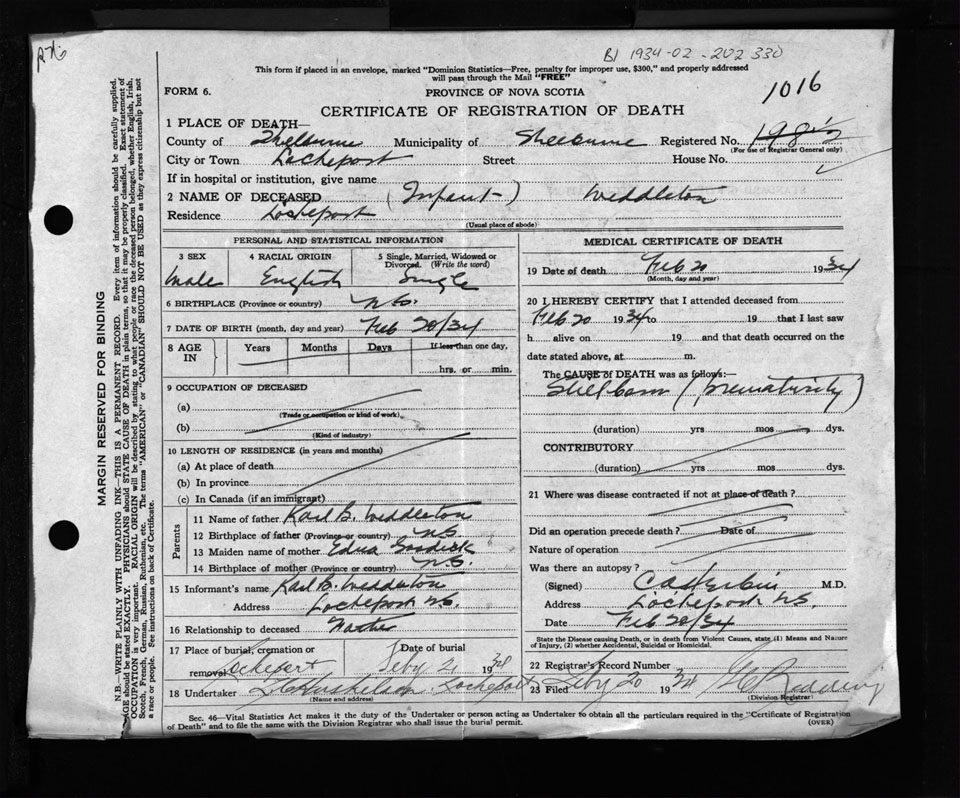 BJ 1934-02-202 330
This form if placed in an envelope, marked "Dominion Statistics—Free, penalty for improper use, $300," and properly addressed
will pass through the Mail "FREE"
1016
FORM 6.
PROVINCE OF NOVA SCOTIA
CERTIFICATE OF REGISTRATION OF DEATH
1 PLACE OF DEATH—
County of Shelburne Municipality of Shelburne Registered No.
(For use of Registrar General only)
City or Town Lockeport Street House No.
If in hospital or institution, give name
2 NAME OF DECEASED (Infant)
Residence Lockeport
(Usual place of abode)
PERSONAL AND STATISTICAL INFORMATION
3 SEX 4 RACIAL ORIGIN 5 Single, Married, Widowed or
Divorced. (Write the word)
Male English Single
6 BIRTHPLACE (Province or country) N.S.
7 DATE OF BIRTH (month, day and year) Feb 20/34
8 AGE IN Years Months Days If less than one day,
hrs. or min.
9 OCCUPATION OF DECEASED
(a)
(Trade or occupation or kind of work)
(b)
(Kind of industry)
10 LENGTH OF RESIDENCE (in years and months)
(a) At place of death
(b) In province
(c) In Canada (if an immigrant)
Parents
11 Name of father Karl B.
12 Birthplace of father (Province or country) N.S.
13 Maiden name of mother Edna
14 Birthplace of mother (Province or country) N.S.
15 Informant's name Karl B.
Address Lockeport N.S.
16 Relationship to deceased Father
17 Place of burial, cremation or
removal Lockeport
Date of burial
Feby 21 1934
18 Undertaker Lockeport
(Name and address)
MEDICAL CERTIFICATE OF DEATH
19 Date of death Feb 20 1934
(Month, day and year)
20 I HEREBY CERTIFY that I attended deceased from
Feb 20 1934 to 19 that I last saw
h alive on 19 and that death occurred on the
date stated above, at m.
The CAUSE of DEATH was as follows:—
Stillborn (prematurity)
(duration) yrs mos dys.
CONTRIBUTORY
(duration) yrs mos dys.
21 Where was disease contracted if not at place of death ?
Did an operation precede death ? Date of
Nature of operation
Was there an autopsy ?
(Signed) M.D.
Address Lockeport N.S.
Date Feb 20/34
State the Disease causing Death, or in death from Violent Causes, state (1) Means and Nature
of Injury, (2) whether Accidental, Suicidal or Homicidal.
22 Registrar's Record Number
23 Filed Feby 20 1934
(Division Registrar)
Sec. 46—Vital Statistics Act makes it the duty of the Undertaker or person acting as Undertaker to obtain all the particulars required in the "Certificate of Registration
of Death" and to file the same with the Division Registrar who shall issue the burial permit. (OVER)
MARGIN RESERVED FOR BINDING
N.B. WRITE PLAINLY WITH UNFADING INK—THIS IS A PERMANENT RECORD. Every item of information should be carefully supplied.
AGE should be stated EXACTLY. PHYSICIANS should STATE CAUSE OF DEATH in plain terms, so that it may be properly classified. Exact statement of
OCCUPATION is very important. RACIAL ORIGIN will be described by stating to what people or race the deceased person belonged, whether English, Irish,
Scotch, French, German, Russian, Ruthenian, etc. The terms "AMERICAN" or "CANADIAN" SHOULD NOT BE USED as they express citizenship but not
a race or people. See instructions on back of Certificate.